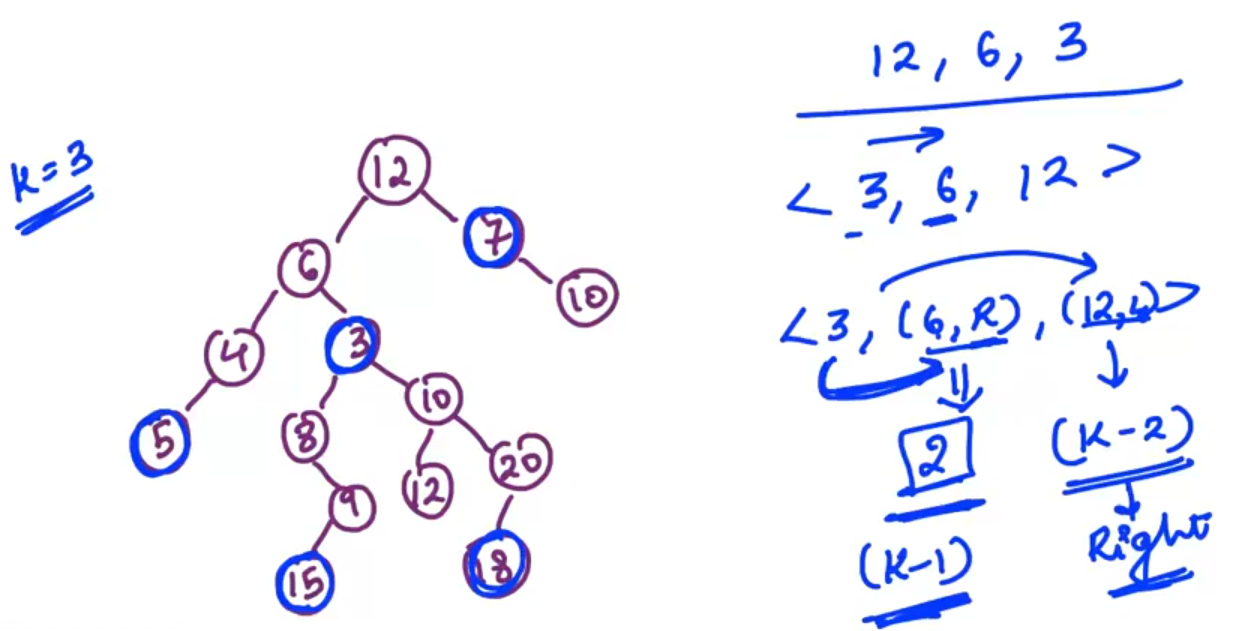 K = 3
12
6
7
4
3
10
5
8
10
9
12
20
15
18
12, 6, 3
< 3, 6, 12 >
< 3, (6, R), (12, L) >
2
(K-2)
(K-1)
Right